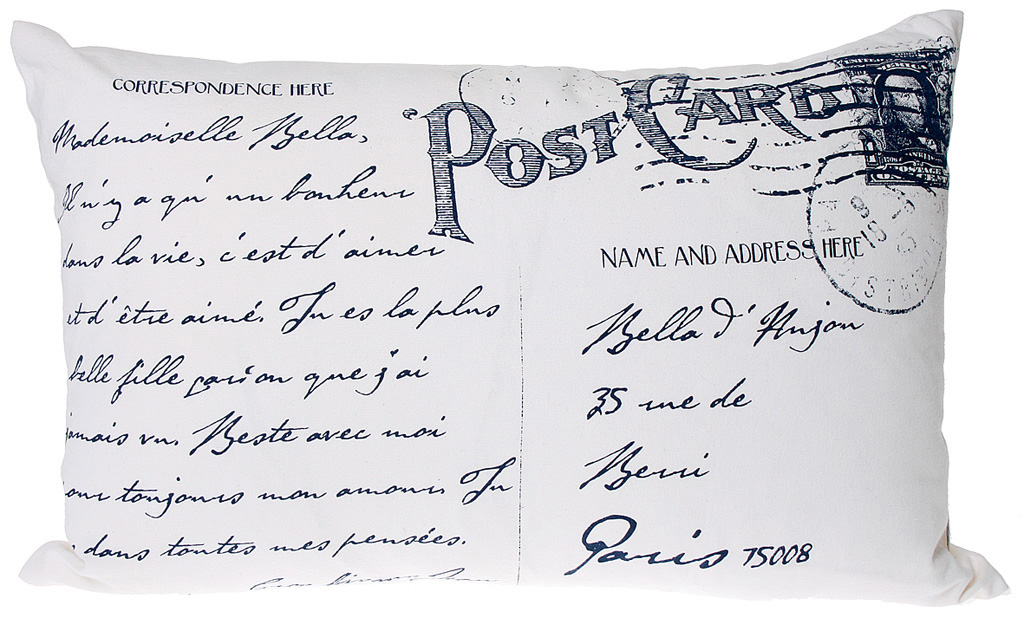 CORRESPONDENCE HERE
POST CARD
Mademoiselle Bella,
Il n'y a qu' un bonheur
dans la vie, c'est d'aimer
et d'être aimé. Tu es la plus
belle fille que j'ai
jamais vu. Reste avec moi
our toujours mon amour. Tu
dans toutes mes pensées.
NAME AND ADDRESS HERE
Bella d'Anjou
35 rue de
Berri
Paris 75008